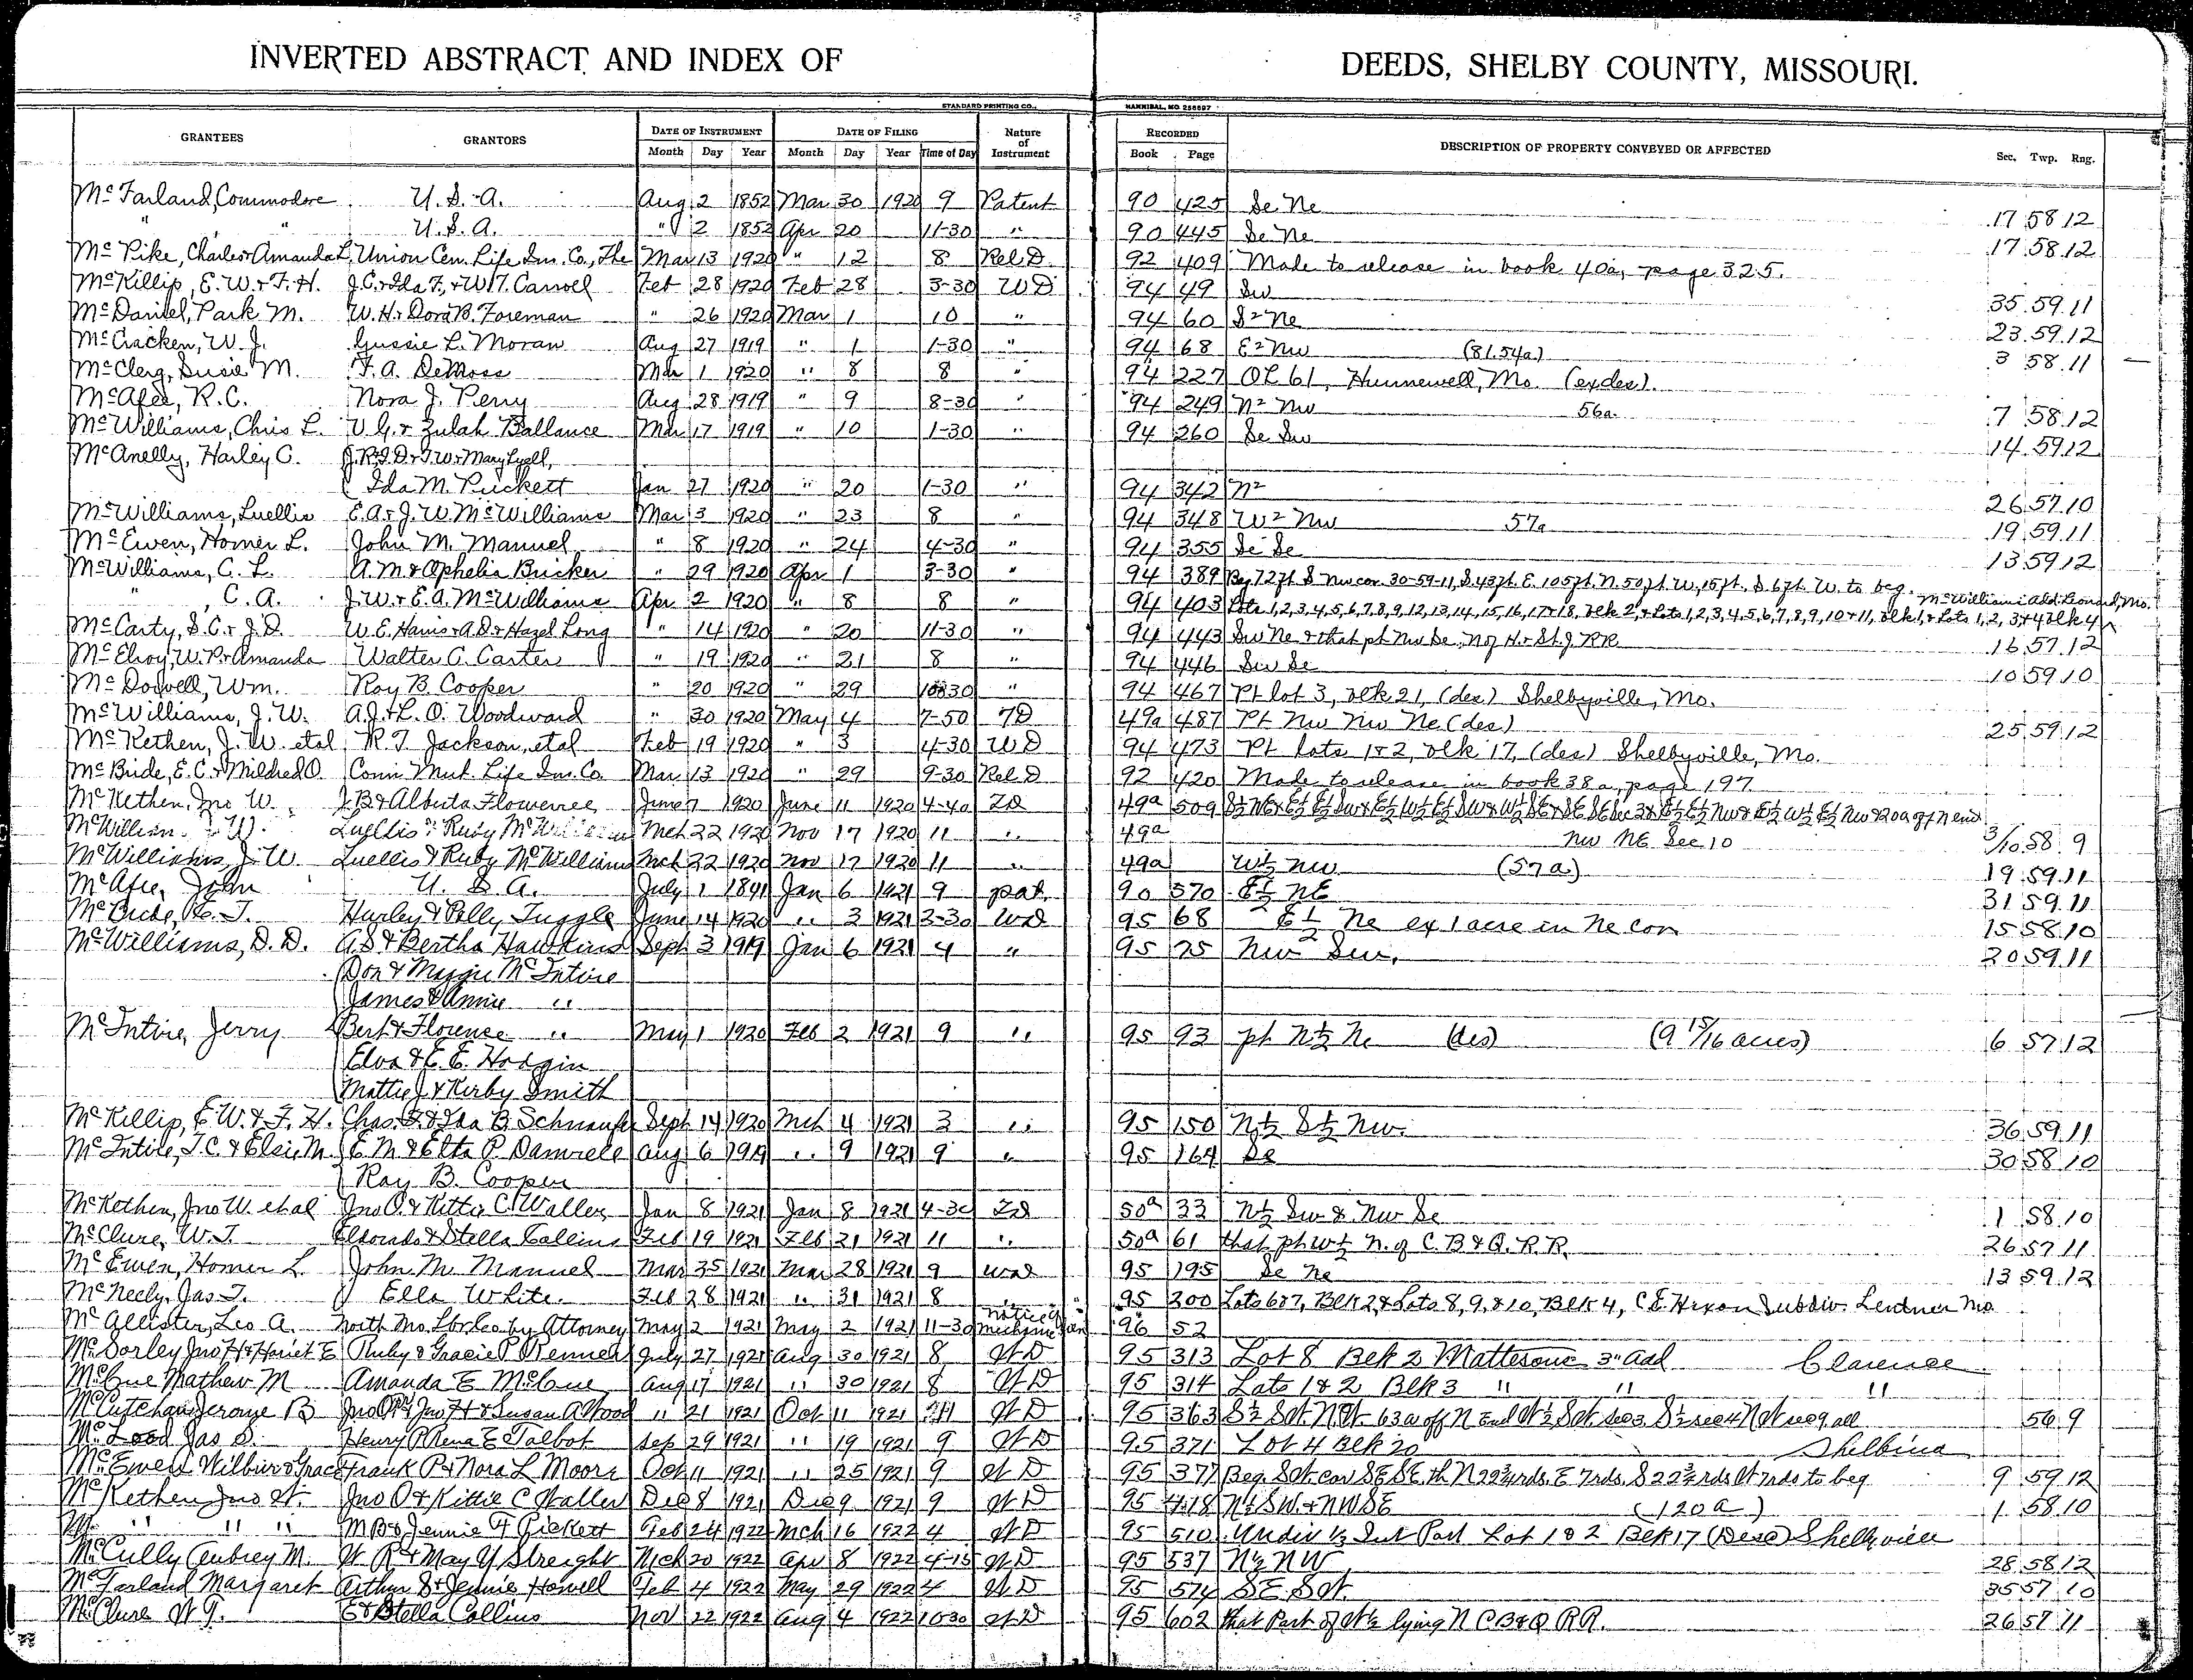 INVERTED ABSTRACT AND INDEX OF DEEDS, SHELBY COUNTY, MISSOURI.
STANDARD PRINTING CO., HANNIBAL, MO. 256897
GRANTEES GRANTORS DATE OF INSTRUMENT DATE OF FILING Nature of Instrument RECORDED DESCRIPTION OF PROPERTY CONVEYED OR AFFECTED Sec. Twp. Rng.
Month Day Year Month Day Year Time of Day Book Page
McFarland, Commodore U. S. A. Aug 2 1852 Mar 30 1920 9 Patent 90 425 Se Ne 17 58 12
" " U. S. A. " 2 1852 Apr 20 11-30 " 90 445 Se Ne 17 58 12
McPike, Charles & Amanda L. Union Cen. Life Ins. Co., The Mar 13 1920 " 12 8 Rel D 92 409 Made to release in book 40a, page 325.
McKillip, E. W. & F. H. J.C. & Ida F., & W.T. Carroll Feb 28 1920 Feb 28 3-30 WD 94 49 Sw 35 59 11
McDaniel, Park M. W. H. & Dora B. Foreman " 26 1920 Mar 1 10 " 94 60 S2 Ne 23 59 12
McCracken, W. J. Gussie L. Moran Aug 27 1919 " 1 1-30 " 94 68 E2 Nw (81.54a) 3 58 11
McClerg, Susie M. F. A. DeMoss Mar 1 1920 " 8 8 " 94 227 OL 61, Hunnewell, Mo. (ex des).
McAfee, R. C. Nora J. Perry Aug 28 1919 " 9 8-30 " 94 249 N2 Nw 56a. 7 58 12
McWilliams, Chris L. V. G. & Zulah Ballance Mar 17 1919 " 10 1-30 " 94 260 Se Sw 14 59 12
McAnelly, Harley C. J. R. & I. D. & T. W. & Mary Lyell,
Ida M. Puckett Jan 27 1920 " 20 1-30 " 94 342 N2 26 57 10
McWilliams, Luellis E. A. & J. W. McWilliams Mar 3 1920 " 23 8 " 94 348 W2 Nw 57a 19 59 11
McEwen, Homer L. John M. Manuel " 8 1920 " 24 4-30 " 94 355 Se Se 13 59 12
McWilliams, C. L. A. M. & Ophelia Bricker " 29 1920 Apr 1 3-30 " 94 389 Beg 72ft S Nw cor. 30-59-11, S. 43ft. E. 105ft. N. 50ft W. 15ft. S. 6ft. W. to beg.
" , C. A. J. W. & E. A. McWilliams Apr 2 1920 " 8 8 " 94 403 Lots 1,2,3,4,5,6,7,8,9,12,13,14,15,16,17&18, blk 2, & Lots 1,2,3,4,5,6,7,8,9,10&11, blk 1, & Lots 1,2,3&4 blk 4 McWilliams Add. Leonard, Mo.
McCarty, S. C. & J. D. W. E. Harris & A. D. & Hazel Long " 14 1920 " 20 11-30 " 94 443 Sw Ne & that pt Nw Se, N of H & St. J. RR 16 57 12
McElroy, W. P. & Amanda Walter C. Carter " 19 1920 " 21 8 " 94 446 Sw Se 10 59 10
McDowell, Wm. Roy B. Cooper " 20 1920 " 29 1030 " 94 467 Pt lot 3, blk 21, (des) Shelbyville, Mo.
McWilliams, J. W. A. J. & L. O. Woodward " 30 1920 May 4 7-50 TD 49a 487 Pt Nw Nw Ne (des) 25 59 12
McKethen, J. W. et al R. T. Jackson, et al Feb 19 1920 " 3 4-30 WD 94 473 Pt lots 1&2, blk 17, (des) Shelbyville, Mo.
McBride, E. C. & Mildred O. Conn. Mut. Life Ins. Co. Mar 13 1920 " 29 9-30 Rel D 92 420 Made to release in book 38a, page 197
McKethen, Jno W. J. B. & Alberta Flowerree June 7 1920 June 11 1920 4-40 TD 49a 509
McWilliams J W. Luellis & Ruby McWilliams Mch 22 1920 Nov 17 1920 11 " 49a Nw NE Sec 10 3/10 58 9
McWilliams, J. W. Luellis & Ruby McWilliams Mch 22 1920 Nov 17 1920 11 " 49a W½ Nw (57a) 19 59 11
McAfee, John U. S. A. July 1 1841 Jan 6 1921 9 pat. 90 570 E½ NE 31 59 11
Hurley & Polly Tuggle June 14 1920 " 3 1921 2-30 WD 95 68 E½ Ne ex 1 acre in Ne cor 15 58 10
McWilliams, D. D. A. S. & Bertha Hawkins Sept 3 1919 Jan 6 1921 4 " 95 75 Nw Sw. 20 59 11
Don & Maggie McIntire
James & Annie "
McIntire, Jerry Bert & Florence " May 1 1920 Feb 2 1921 9 " 95 93 pt N½ Ne (des) (9 15/16 acres) 6 57 12
Elva & E. E. Hodgin
Mattie J & Kirby Smith
McKillip, E. W. & F. H. Chas. F. & Ida B. Schnaufer Sept 14 1920 Mch 4 1921 3 " 95 150 N½ S½ Nw. 36 59 11
McIntire, T. C. & Elsie M. E. M. & Etta P. Damrell Aug 6 1919 " 9 1921 9 " 95 164 Se 30 58 10
Ray B. Cooper
McKethen, Jno W. et al Jno O. & Kittie C. Waller Jan 8 1921 Jan 8 1921 4-30 TD 50a 33 N½ Sw & Nw Se 1 58 10
McClure, W. T. Eldorado & Stella Collins Feb 19 1921 Feb 21 1921 11 " 50a 61 that pt W½ N. of C. B & Q. R. R. 26 57 11
McEwen, Homer L. John M. Manuel Mar 25 1921 Mar 28 1921 9 WD 95 195 Se Ne 13 59 12
McNeely, Jas T. Ella White Feb 28 1921 " 31 1921 8 " 95 200 Lots 6&7, Blk 2, & Lots 8, 9, & 10, Blk 4, C. E. Hixon Subdiv. Lentner Mo.
McAllister, Leo A. North Mo. Lbr. Co by Attorney May 2 1921 May 2 1921 11-30 Notice of Mechanic Lien 96 52
McSorley Jno H & Hariet E Ruby & Gracie P Renner July 27 1921 Aug 30 1921 8 WD 95 313 Lot 8 Blk 2 Mattesons 3" Add Clarence
McCue Mathew M Amanda E McCue Aug 17 1921 " 30 1921 8 WD 95 314 Lots 1 & 2 Blk 3 " " "
McCutchan Jerome B Jno H & Susan A Wood " 21 1921 Oct 11 1921 WD 95 363 S½ SW NW 63a off N End W½ SW sec 3 S½ sec 4 NW sec 9 all 56 9
Jas S. Henry P Rena E Talbot Sep 29 1921 " 19 1921 9 WD 95 371 Lot 4 Blk 20 Shelbina
McEwen Wilbur & Grace Frank P & Nora L Moore Oct 11 1921 " 25 1921 9 WD 95 377 Beg. SW cor SE SE th N 22¾ rds. E 7 rds. S 22¾ rds W 7 rds to beg 9 59 12
McKethen Jno W. Jno O & Kittie C Waller Dec 8 1921 Dec 9 1921 9 WD 95 418 N½ SW & NW SE (120 a) 1 58 10
" " " M B & Jennie H Pickett Feb 24 1922 Mch 16 1922 4 WD 95 510 Undiv ⅓ Int Part Lot 1 & 2 Blk 17 (Desc) Shelbyville
McCully Aubrey M. W R & May Y Streight Mch 20 1922 Apr 8 1922 4-15 WD 95 537 N½ NW 28 58 12
McFarland Margaret Arthur S & Jennie Howell Feb 4 1922 May 29 1922 4 WD 95 574 SE SW. 35 57 10
McClure W. T. E & Stella Collins Nov 22 1922 Aug 4 1922 10 30 WD 95 602 that Part of W½ lying N C B & Q RR. 26 57 11